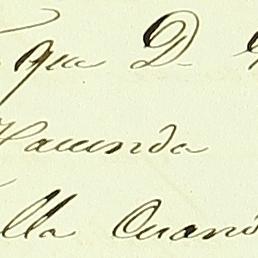 que D.
Hacienda
lla Cuand